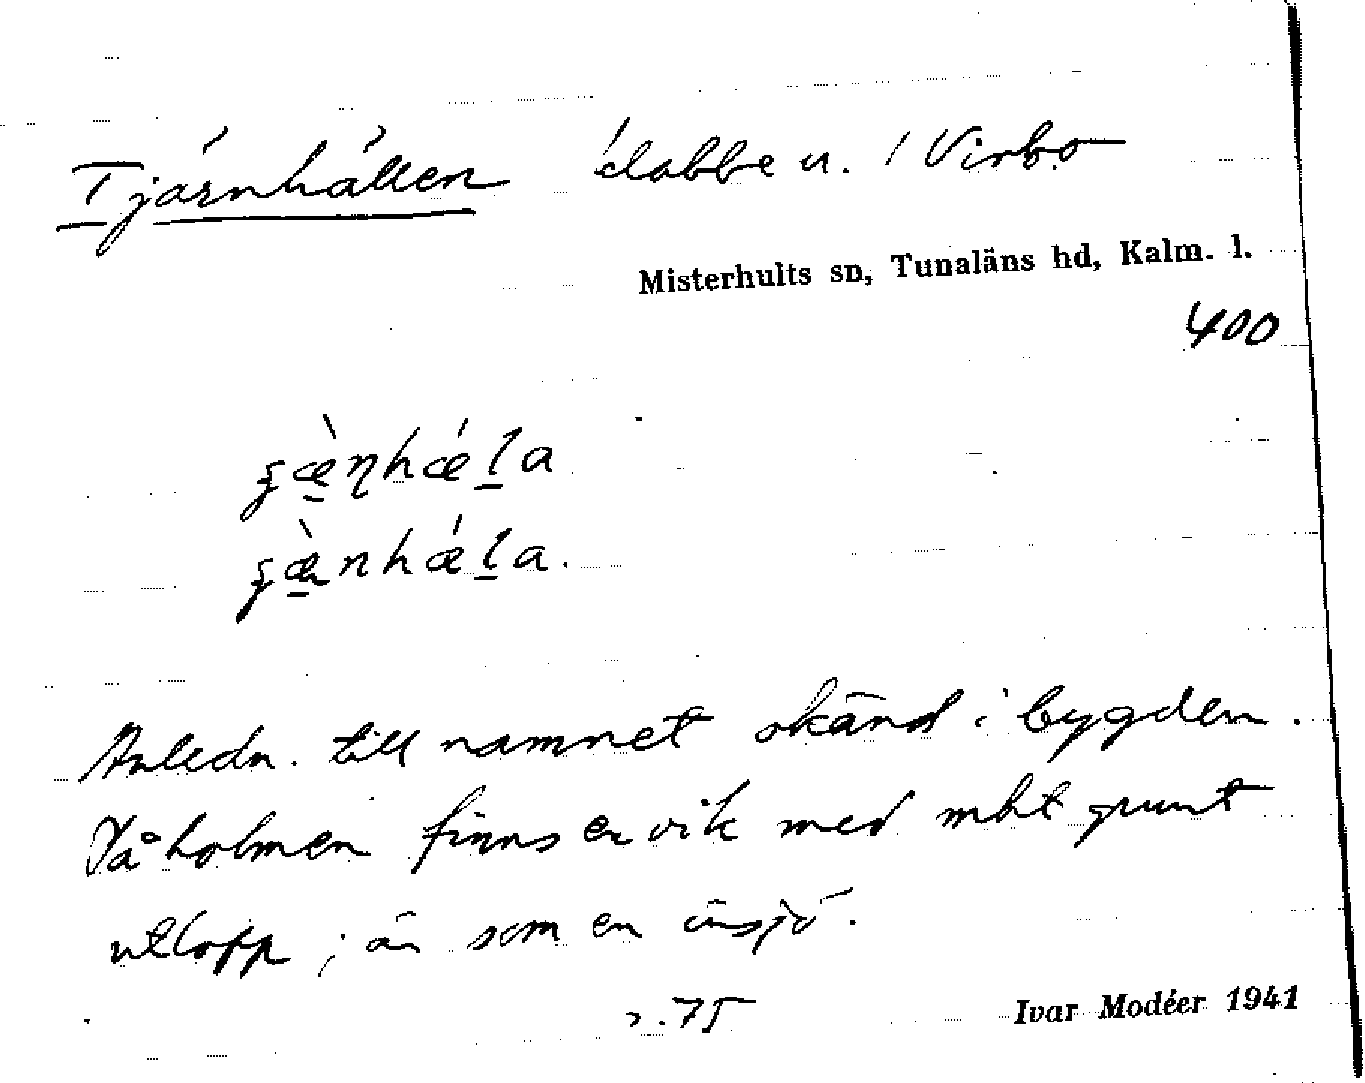 Tjärnhällen klabbe u. / Virbo
Misterhults sn, Tunaläns hd, Kalm. l.
400
Anledn. till namnet okänd i bygden.
På holmen finns en vik med mkt grunt
utlopp; är som en insjö.
s. 75
Ivar Modéer 1941